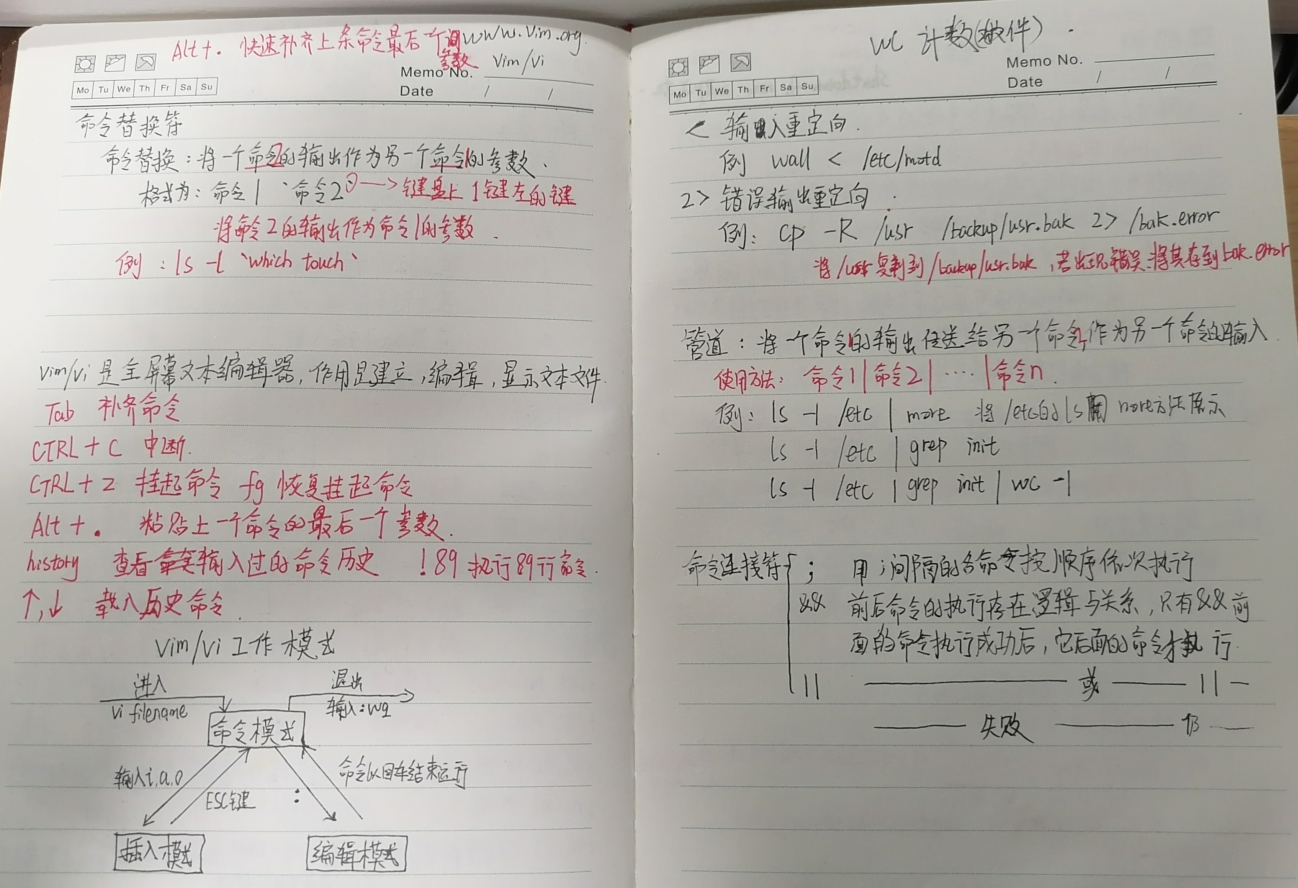 Alt+. 快速补齐上条命令最后一个参数
www.vim.org.
Memo No. Vim/vi
Mo Tu We Th Fr Sa Su
Date / /
命令替换符
命令替换：将一个命令2的输出作为另一个命令1的参数.
格式为：命令1 `命令2` ---> 键盘上1键左的键
将命令2的输出作为命令1的参数.
例：ls -l `which touch`
Vim/vi 是全屏幕文本编辑器，作用是建立，编辑，显示文本文件.
Tab 补齐命令
CTRL + C 中断.
CTRL + Z 挂起命令 fg 恢复挂起命令
Alt + . 粘贴上一个命令的最后一个参数.
history 查看输入过的命令历史 !89 执行89行命令.
↑,↓ 载入历史命令.
Vim/vi 工作模式
进入
vi filename
退出
输入:wq
命令模式
输入i,a,o
ESC键
:
命令以回车结束运行
插入模式
编辑模式
wc 计数(软件).
Memo No.
Mo Tu We Th Fr Sa Su
Date / /
< 输入重定向.
例 wall < /etc/motd
2> 错误输出重定向.
例：cp -R /usr /backup/usr.bak 2> /bak.error
将/usr复制到/backup/usr.bak，若出现错误.将其存到bak.error
管道：将一个命令1的输出传送给另一个命令2,作为另一个命令的输入.
使用方法：命令1 | 命令2 | ···· | 命令n.
例：ls -l /etc | more 将/etc的ls用more方法展示
ls -l /etc | grep init
ls -l /etc | grep init | wc -l
命令连接符
; 用；间隔的各命令按顺序依次执行
&& 前后命令的执行存在逻辑与关系，只有&&前
面的命令执行成功后，它后面的命令才执行.
|| —— 或 —— || —
—— 失败 —— 才 ——